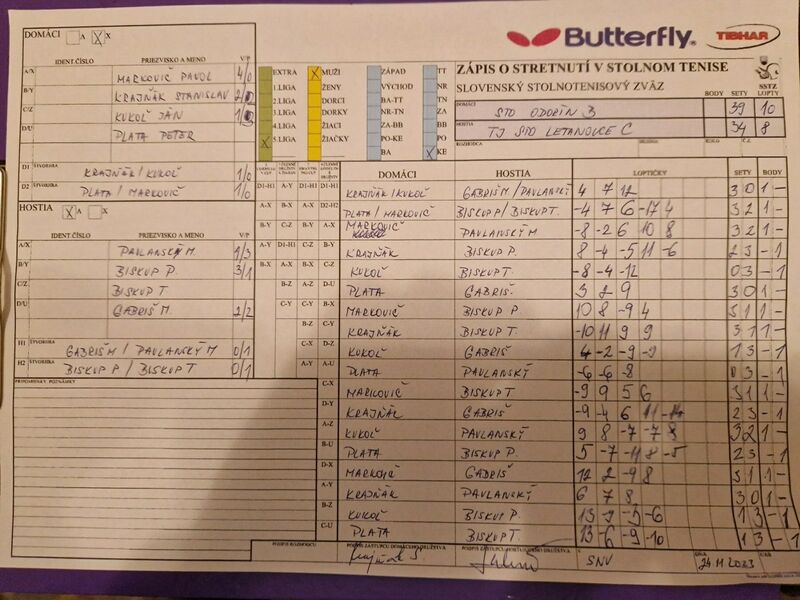 DOMÁCI A X X
IDENT.ČÍSLO PRIEZVISKO A MENO V/P
A/X MARKOVIČ PAVOL 4/0
B/Y KRAJŇÁK STANISLAV
C/Z KUKOĽ JÁN
D/U PLATA PETER
D1 ŠTVORHRA KRAJŇÁK / KUKOĽ 1/0
D2 ŠTVORHRA PLATA / MARKOVIČ 1/0
HOSTIA X A X
IDENT.ČÍSLO PRIEZVISKO A MENO V/P
A/X PAVLANSKÝ M. 1/3
B/Y BISKUP P. 3/1
C/Z BISKUP T
D/U GABRIŠ M. 2/2
H1 ŠTVORHRA GABRIŠ M / PAVLANSKÝ M 0/1
H2 ŠTVORHRA BISKUP P / BISKUP T 0/1
PRIPOMIENKY, POZNÁMKY
EXTRA X MUŽI ZÁPAD TT
1.LIGA ŽENY VÝCHOD NR
2.LIGA DORCI BA-TT TN
3.LIGA DORKY NR-TN ZA
4.LIGA ŽIACI ZA-BB BB
X 5.LIGA ŽIAČKY PO-KE PO
BA X KE
Butterfly
TIBHAR
ZÁPIS O STRETNUTÍ V STOLNOM TENISE
SLOVENSKÝ STOLNOTENISOVÝ ZVÄZ
SSTZ
BODY SETY LOPTY
DOMÁCI STO ODORÍN B 39 10
HOSTIA TJ STO LETANOVCE C 34 8
ROZHODCA
DOMÁCI HOSTIA LOPTIČKY SETY BODY
D1-H1 A-Y D1-H1 D1-H1 KRAJŇÁK / KUKOĽ GABRIŠ M / PAVLANSKÝ 4 7 12 3 0 1 -
A-X B-X A-X D2-H2 PLATA / MARKOVIČ BISKUP P / BISKUP T. -4 7 6 -17 4 3 2 1 -
B-Y C-Z B-Y A-X MARKOVIČ PAVLANSKÝ M -8 -2 6 10 8 3 2 1 -
A-Y D1-H1 C-Z B-Y KRAJŇÁK BISKUP P. 8 -4 -5 11 -6 2 3 - 1
B-X A-X B-X C-Z KUKOĽ BISKUP T -8 -4 -12 0 3 - 1
B-Z A-Z D-U PLATA GABRIŠ 3 2 9 3 0 1 -
C-Y C-Y B-X MARKOVIČ BISKUP P. 10 8 -9 4 3 1 1 -
B-Z C-Y KRAJŇÁK BISKUP T. -10 11 9 9 3 1 1 -
KUKOĽ GABRIŠ 1 3 - 1
A-Y A-U PLATA PAVLANSKÝ -6 -6 -8 0 3 - 1
C-X MARKOVIČ BISKUP T -9 9 5 6 3 1 1 -
D-Y KRAJŇÁK GABRIŠ -9 -4 6 11 -14 2 3 - 1
A-Z KUKOĽ PAVLANSKÝ 9 8 -7 -7 8 3 2 1 -
B-U PLATA BISKUP P. 2 3 - 1
D-X MARKOVIČ GABRIŠ 12 2 -9 8 3 1 1 -
A-Y KRAJŇÁK PAVLANSKÝ 6 7 8 3 0 1 -
B-Z KUKOĽ BISKUP P. 1 3 - 1
C-U PLATA BISKUP T. 13 -6 -9 -10 1 3 - 1
PODPIS ROZHODCU PODPIS ZÁSTUPCU DOMÁCEHO DRUŽSTVA PODPIS ZÁSTUPCU HOSŤUJÚCEHO DRUŽSTVA SNV 24 11 2023